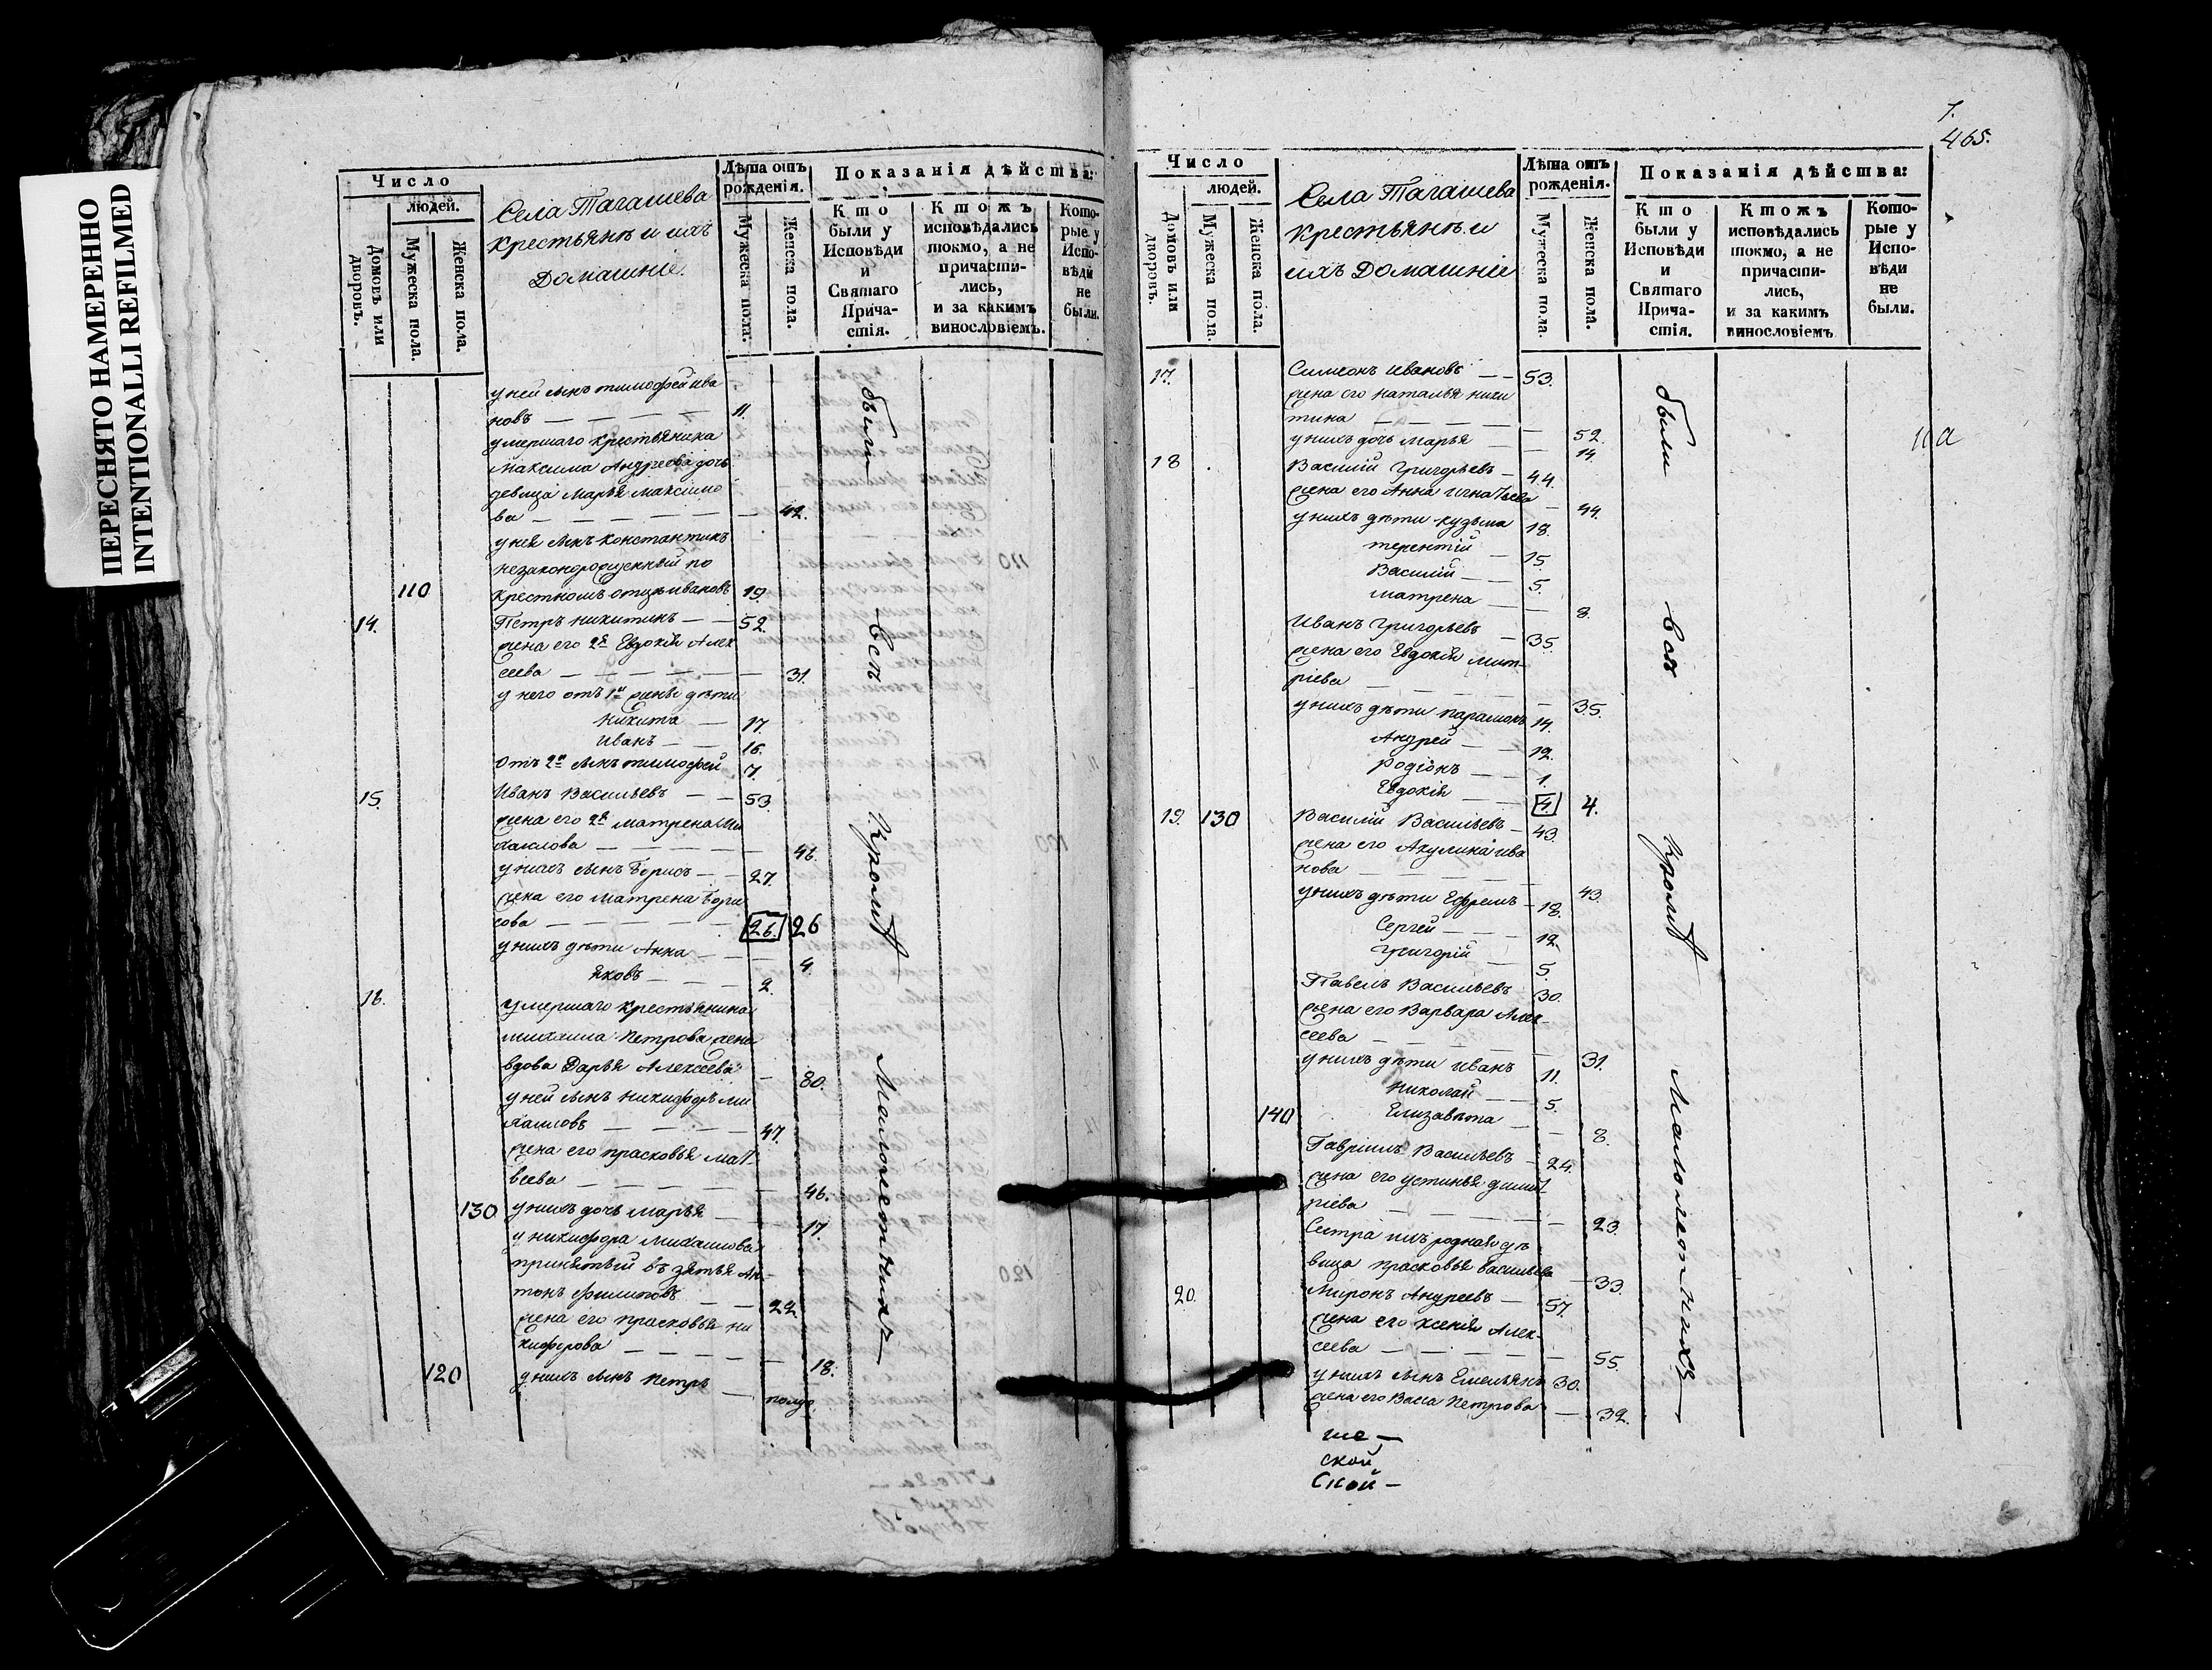 ПЕРЕСНЯТО НАМЕРЕННО
INTENTIONALLI REFILMED
Число
людей.
Домовъ или дворовъ.
Мужеска пола.
Женска пола.
Села Тагашева
крестьянъ и ихъ
Домашніе.
Лѣта отъ
рожденія.
Мужеска пола.
Женска пола.
Показанія дѣйства:
Кто
были у
Исповѣди
и
Святаго
Прича-
стія.
Ктожъ
исповѣдались
токмо, а не
причасти-
лись,
и за какимъ
винословіемъ.
Кото-
рые у
Испо-
вѣди
не
были.
у ней сынъ тимофей ива
новъ — — — — 11.
умершаго крестьянина
Максима Андреева дочь
девица Марья Максимо
ва — — — — — 42.
у нея сынъ константинъ
незаконорожденный по
110 крестномъ отцѣ ивановъ 19.
14. Петръ никитинъ — — 52.
жена его 2я Евдокія Алек
сеева — — — — — 31.
у него отъ 1й жены дѣти
никита — 17.
иванъ — — 16.
отъ 2й сынъ тимофей 7.
15. Иванъ Васильевъ — — 53.
жена его 2я матрена Ми
хаилова — — — — 46.
у нихъ сынъ Борисъ — — 27.
жена его матрена Бори
сова — — — — — 26. 26
у нихъ дѣти Анна — — — 4.
яковъ — — — 2.
16. умершаго крестьянина
михаила Петрова жена
вдова Дарья Алексеева — 80.
у ней сынъ никифоръ ми
хаиловъ — — — — 47.
жена его прасковья мат
веева — — — — — 46.
130 у нихъ дочь марья — — 17.
у никифора михаилова
принятый въ зятья Ан-
тонъ филиповъ — — 22.
жена его прасковья ни
кифорова — — — — — 18.
120 у нихъ сынъ петръ — полуг.
были
всѣ
кромѣ
Малолетнихъ
7.
465.
11а
Число
людей.
Домовъ или дворовъ.
Мужеска пола
Женска пола.
Села Тагашева
крестьянъ и
ихъ Домашніе
Лѣта отъ
рожденія.
Мужеска пола.
Женска пола.
Показанія дѣйства:
Кто
были у
Исповѣди
и
Святаго
Прича-
стія.
Ктожъ
исповѣдались
токмо, а не
причасти-
лись,
и за какимъ
винословіемъ
Кото-
рые у
Испо-
вѣди
не
были.
17. Симеонъ ивановъ — — 53.
жена его наталья ники
тина — — — — — 52.
у нихъ дочь марья — — 14.
18 Василій Григорьевъ — 44.
жена его Анна игнатьева — 44.
у нихъ дѣти кузьма 18.
терентій — 15.
Василій — — 5.
матрена — — 8.
Иванъ Григорьевъ — 35.
жена его Евдокія Мит-
ріева — — — — — 35.
у нихъ дѣти парамонъ 14.
Андрей — — 12.
родіонъ — — 1.
Евдокія — — 4 4.
19. 130 Василій Васильевъ — 43.
жена его Акулина ива
нова — — — — 43.
у нихъ дѣти Ефремъ — 18.
Сергей — — — 12.
Григорій — 5.
Павелъ Васильевъ 30.
жена его Варвара Алек-
сеева — — — — 31.
у нихъ дѣти иванъ 11.
николай — — 5.
140 Елизавѣта — — 8.
Гавріилъ Васильевъ — 24.
жена его устинья димит
ріева — — — — — 23.
Сестра ихъ родная дѣ
вица прасковья васильева — 33.
20. Миронъ Андреевъ — 57.
жена его ксенія Алек-
сеева — — — — — 55.
у нихъ сынъ Емельянъ 30.
жена его Васса Петрова — 32.
были
всѣ
кромѣ
Малолетнихъ
ше —
ской
Ской —